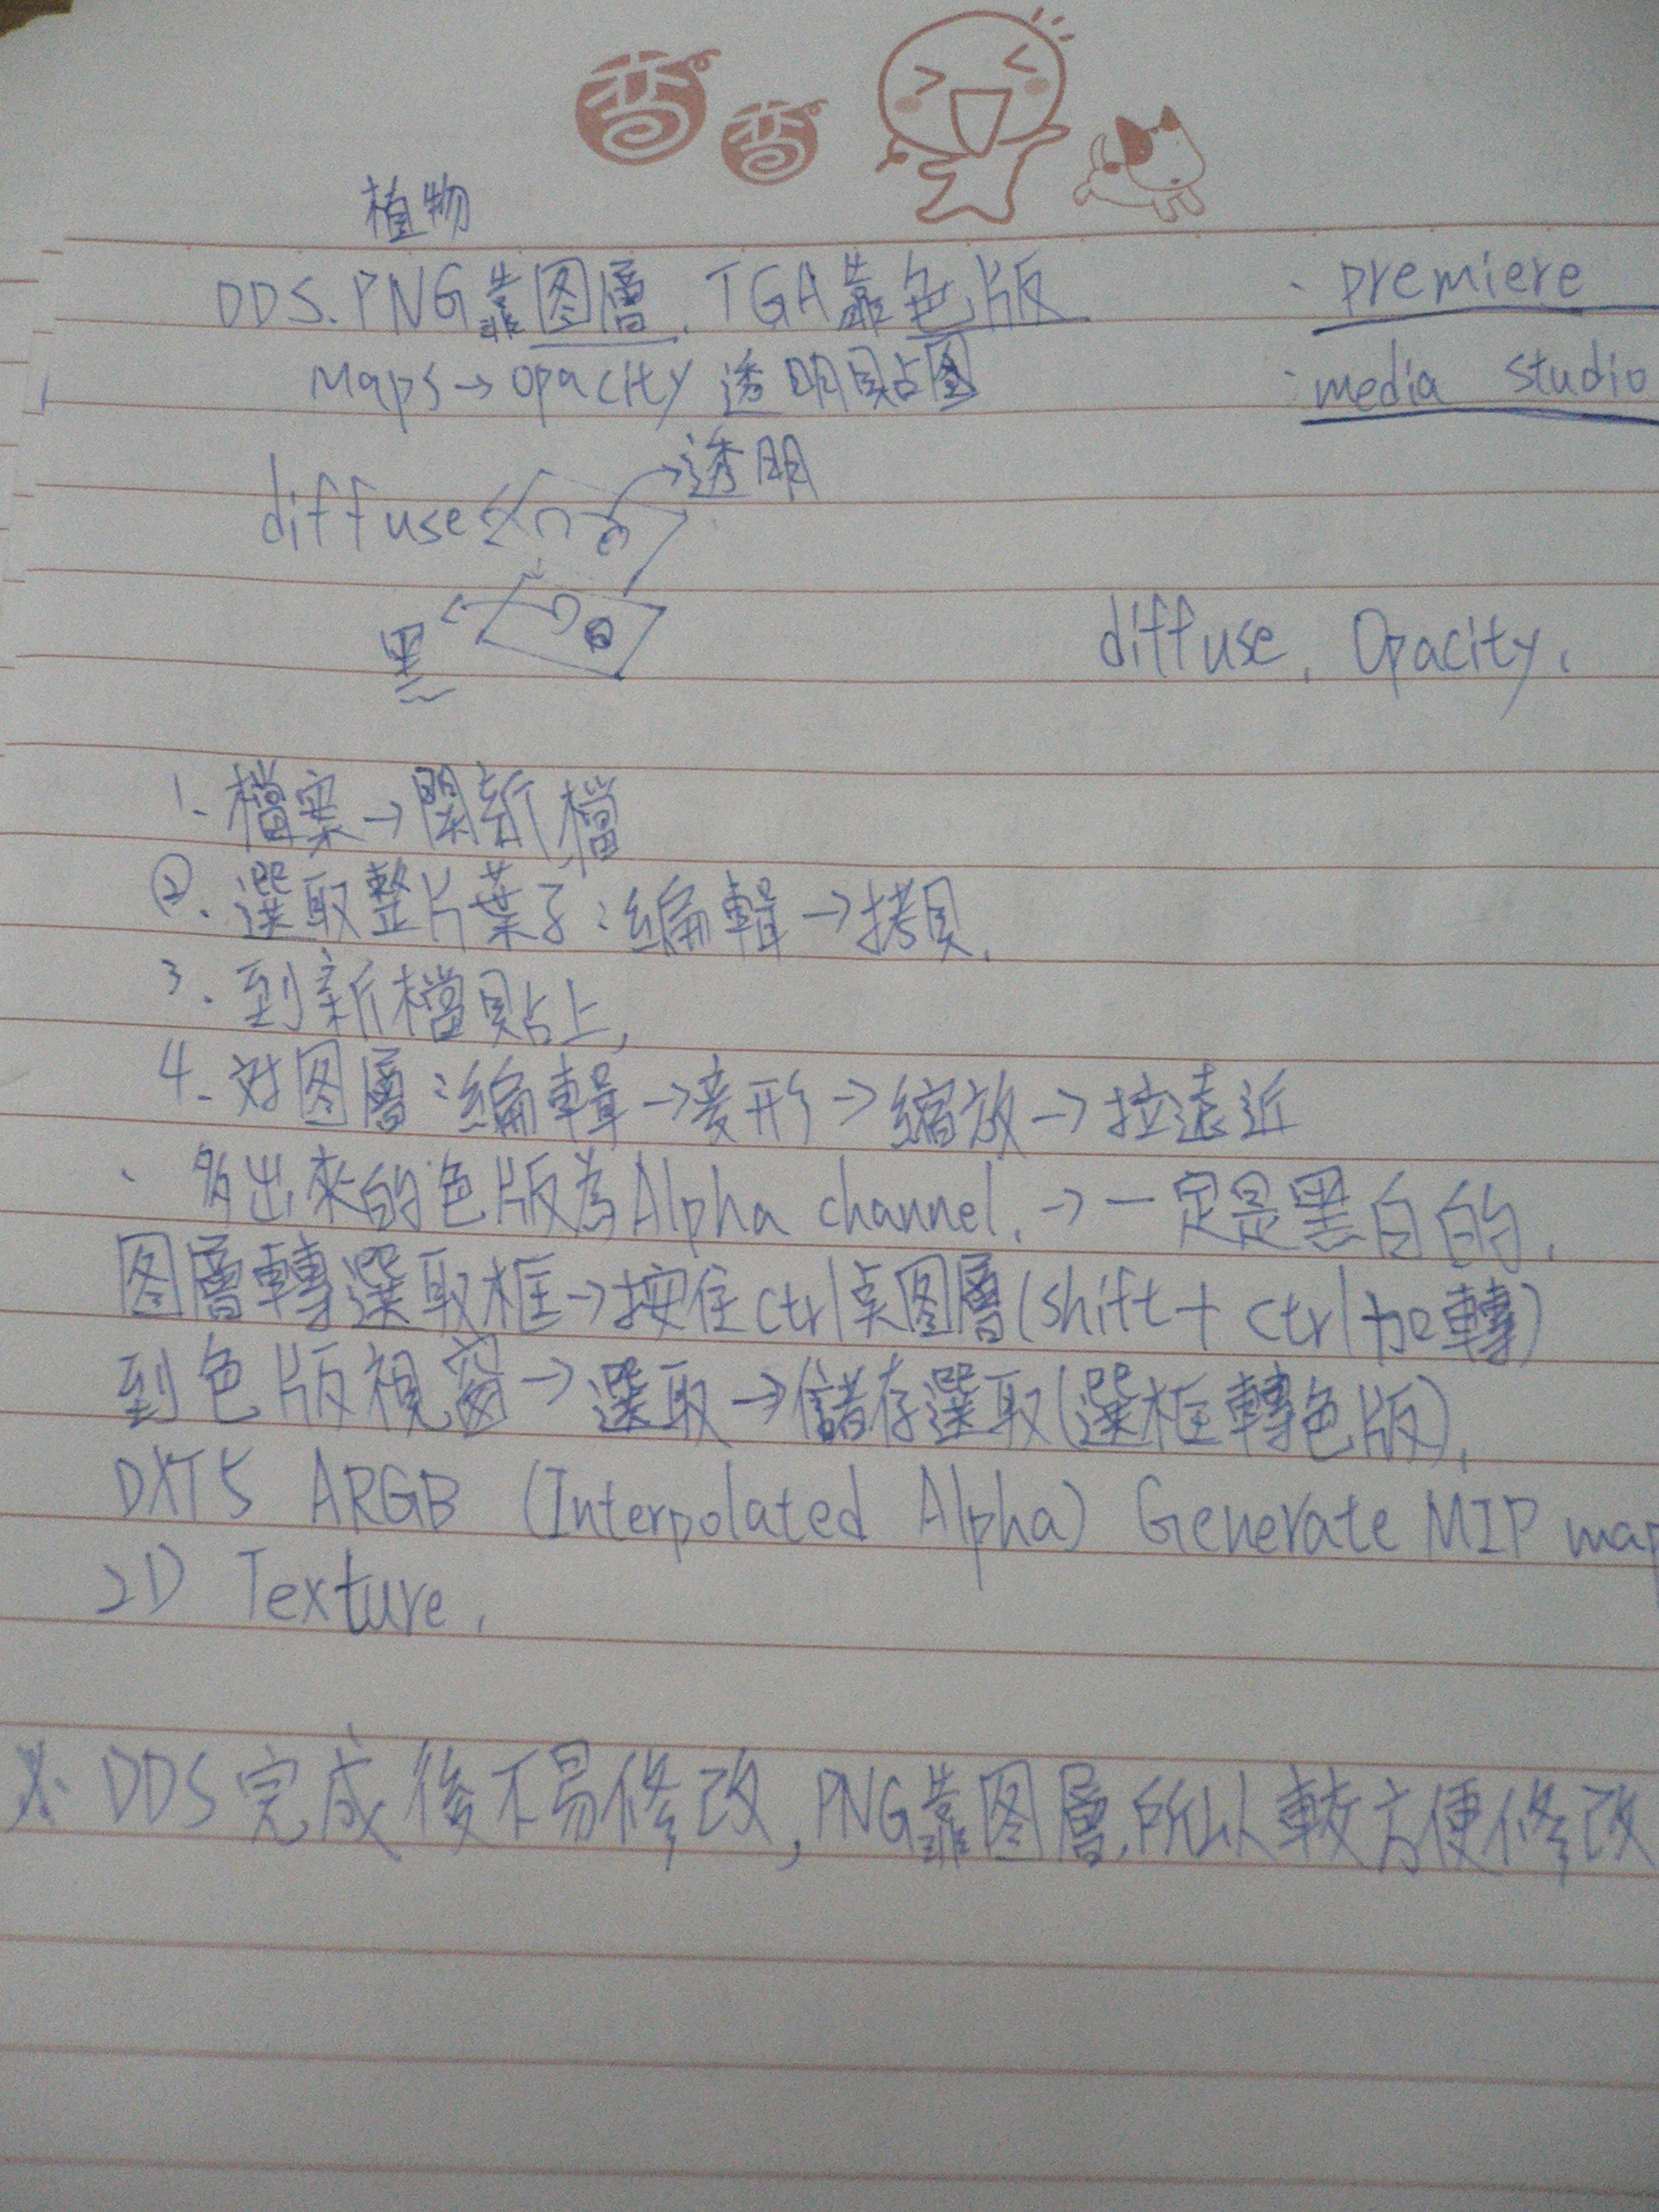 香 香
植物
DDS.PNG靠图層,TGA靠色版
· premiere
Maps→opacity 透明貼图
· media studio
透明
diffuse
黑
白
diffuse, Opacity,
1. 檔案→開新檔
②. 選取整片葉子:編輯→拷貝.
3. 到新檔貼上,
4. 對图層:編輯→変形→縮放→拉遠近
、多出來的色版為Alpha channel.→一定是黑白的.
图層轉選取框→按住ctrl点图層(shift+ctrl加轉)
到色版視窗→選取→儲存選取(選框轉色版),
DXT5 ARGB (Interpolated Alpha) Generate MIP map
2D Texture,
※ DDS完成後不易修改,PNG靠图層,所以較方便修改